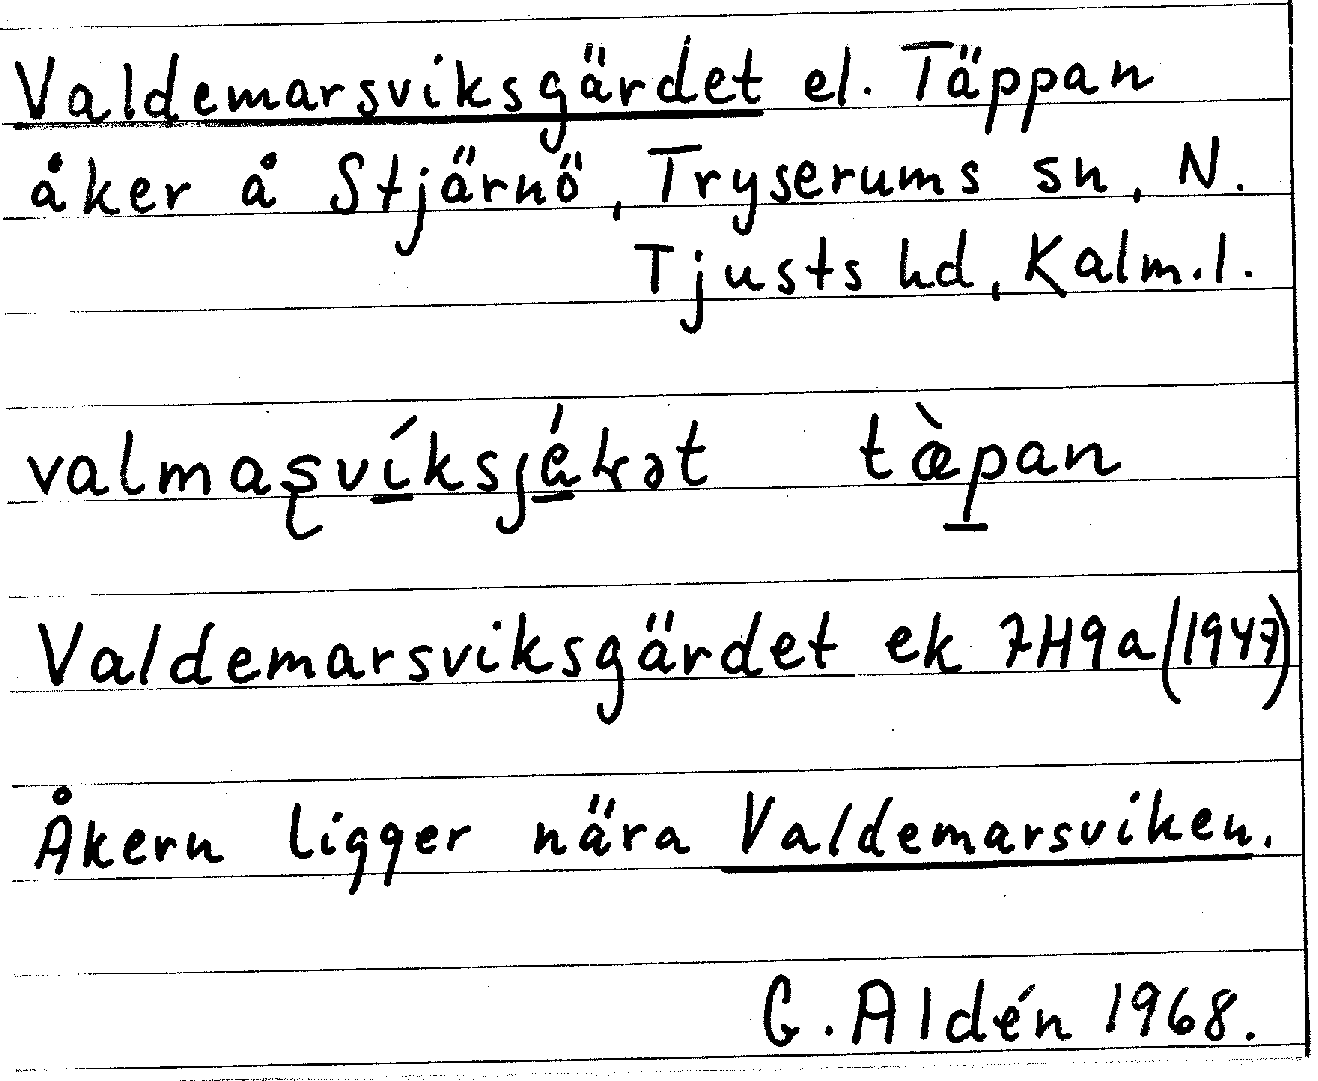 Valdemarsviksgärdet el. Täppan
åker å Stjärnö, Tryserums sn, N.
Tjusts hd, Kalm. l.
tæ̀pan
Valdemarsviksgärdet ek 7H9a (1947)
Åkern ligger nära Valdemarsviken.
G. Aldén 1968.